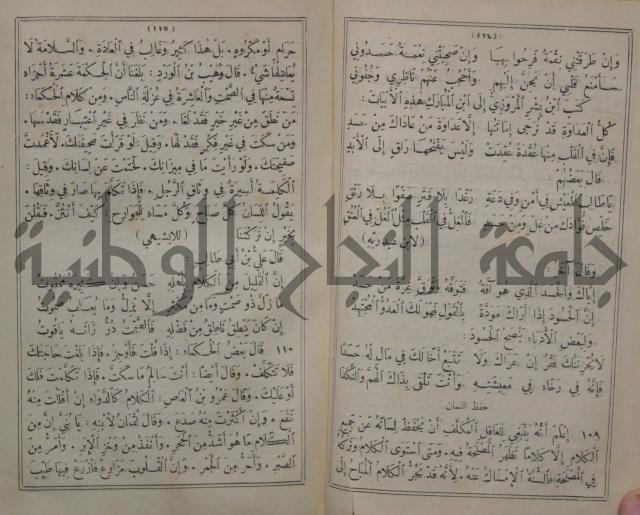 (١١٤)
وَإِنْ طَرَقَتْنِي نِقْمَةٌ فَرِحُوا بِهَا وَإِنْ صَحِبَتْنِي نِعْمَةٌ حَسَدُونِي
سَأَمْنَعُ قَلْبِي أَنْ يَحِنَّ إِلَيْهِمِ وَأَحْجُبُ عَنْهُمْ نَاظِرِي وَجُفُونِي
كَتَبَ ابْنُ بِشْرٍ الْمَرْوَزِيُّ إِلَى ابْنِ الْمُبَارَكِ هٰذِهِ الْأَبْيَاتَ:
كُلُّ الْعَدَاوَةِ قَدْ تُرْجَى إِمَاتَتُهَا إِلَّا عَدَاوَةَ مَنْ عَادَاكَ مِنْ حَسَدِ
فَإِنَّ فِي الْقَلْبِ مِنْهَا عُقْدَةً عُقِدَتْ وَلَيْسَ يَفْتَحُهَا رَاقٍ إِلَى الْأَبَدِ
قَالَ بَعْضُهُمْ:
يَا طَالِبَ الْعَيْشِ فِي أَمْنٍ وَفِي دَعَةٍ رَغَدًا بِلَا قَتَرٍ صَفْوًا بِلَا رَنَقِ
خَلِّصْ فُؤَادَكَ مِنْ غِلٍّ وَمِنْ حَسَدٍ فَالْغِلُّ فِي الْقَلْبِ مِثْلُ الْغُلِّ فِي الْعُنُقِ
(لابن عبد ربه)
وَقَالَ
إِيَّاكَ وَالْحَسَدَ الَّذِي هُوَ آفَةٌ فَتَوَقَّهُ وَتَوَقَّ غِرَّةَ مَنْ حَسَدْ
إِنَّ الْحَسُودَ إِذَا أَرَاكَ مَوَدَّةً بِالْقَوْلِ فَهْوَ لَكَ الْعَدُوُّ الْمُجْتَهِدْ
وَلِبَعْضِ الْأُدَبَاءِ نُصْحُ الْحَسُودِ:
لَا يُحْزِنَنَّكَ فَقْرٌ إِنْ عَرَاكَ وَلَا تَتْبَعْ أَخًا لَكَ فِي مَالٍ لَهُ حَسَدَا
فَإِنَّهُ فِي رَخَاءٍ فِي مَعِيشَتِهِ وَأَنْتَ تَلْقَى بِذَاكَ الْهَمَّ وَالنَّكَدَا
حفظ اللسان
١٠٩ إِعْلَمْ أَنَّهُ يَنْبَغِي لِلْعَاقِلِ الْمُكَلَّفِ أَنْ يَحْفَظَ لِسَانَهُ عَنْ جَمِيعِ
الْكَلَامِ إِلَّا كَلَامًا تَظْهَرُ الْمَصْلَحَةُ فِيهِ. وَمَتَى اسْتَوَى الْكَلَامُ وَتَرْكُهُ
فِي الْمَصْلَحَةِ فَالسُّنَّةُ الْإِمْسَاكُ عَنْهُ. لِأَنَّهُ قَدْ يَجُرُّ الْكَلَامُ الْمُبَاحُ إِلَى
(١١٥)
حَرَامٍ أَوْ مَكْرُوهٍ. بَلْ هٰذَا كَثِيرٌ وَغَالِبٌ فِي الْعَادَةِ. وَالسَّلَامَةُ لَا
يُعَادِلُهَا شَيْءٌ. قَالَ وُهَيْبُ بْنُ الْوَرْدِ: بَلَغَنَا أَنَّ الْحِكْمَةَ عَشَرَةُ أَجْزَاءٍ
تِسْعَةٌ مِنْهَا فِي الصَّمْتِ وَالْعَاشِرَةُ فِي عُزْلَةِ النَّاسِ. وَمِنْ كَلَامِ الْحُكَمَاءِ:
مَنْ نَطَقَ مِنْ غَيْرِ خَيْرٍ فَقَدْ لَغَا. وَمَنْ نَظَرَ فِي غَيْرِ اعْتِبَارٍ فَقَدْ سَهَا.
وَمَنْ سَكَتَ فِي غَيْرِ فِكْرٍ فَقَدْ لَهَا. وَقِيلَ: لَوْ قَرَأْتَ صَحِيفَتَكَ. لَأَغْمَدْتَ
صَفِيحَتَكَ. وَلَوْ رَأَيْتَ مَا فِي مِيزَانِكَ. لَخَتَمْتَ عَنْ لِسَانِكَ. وَقِيلَ:
الْكَلِمَةُ أَسِيرَةٌ فِي وَثَاقِ الرَّجُلِ. فَإِذَا تَكَلَّمَ بِهَا صَارَ فِي وَثَاقِهَا.
يَقُولُ اللِّسَانُ كُلَّ صَبَاحٍ وَكُلَّ مَسَاءٍ لِلْجَوَارِحِ: كَيْفَ أَنْتُنَّ. فَيَقُلْنَ
بِخَيْرٍ إِنْ تَرَكْتَنَا (للابشيهي)
قَالَ عَلِيُّ بْنُ أَبِي طَالِبٍ:
إِنَّ الْقَلِيلَ مِنَ الْكَلَامِ بِأَهْلِهِ حَسَنٌ وَإِنَّ كَثِيرَهُ مَمْقُوتُ
مَا زَلَّ ذُو صَمْتٍ وَمَا مِنْ مُكْثِرٍ إِلَّا يَزِلُّ وَمَا يُعَابُ صَمُوتُ
إِنْ كَانَ يَنْطِقُ نَاطِقٌ مِنْ فَضْلِهِ فَالصَّمْتُ دُرٌّ زَانَهُ يَاقُوتُ
١١٠ قَالَ بَعْضُ الْحُكَمَاءِ: إِذَا قُلْتَ فَأَوْجِزْ. فَإِذَا بَلَغْتَ حَاجَتَكَ
فَلَا تَتَكَلَّفْ. وَقَالَ أَيْضًا: أَنْتَ سَالِمٌ مَا سَكَتَّ. فَإِذَا تَكَلَّمْتَ فَلَكَ
أَوْ عَلَيْكَ. وَقَالَ عَمْرُو بْنُ الْعَاصِ: الْكَلَامُ كَالدَّوَاءِ إِنْ أَقْلَلْتَ مِنْهُ
نَفَعَ. وَإِنْ أَكْثَرْتَ مِنْهُ صَدَعَ. وَقَالَ لُقْمَانُ لِابْنِهِ: يَا بُنَيَّ إِنَّ مِنَ
الْكَلَامِ مَا هُوَ أَشَدُّ مِنَ الْحَجَرِ. وَأَنْفَذُ مِنْ وَخْزِ الْإِبَرِ. وَأَمَرُّ مِنَ
الصَّبْرِ. وَأَحَرُّ مِنَ الْجَمْرِ. وَإِنَّ الْقُلُوبَ مَزَارِعُ فَازْرَعْ فِيهَا طَيِّبَ
جامعة النجاح الوطنية